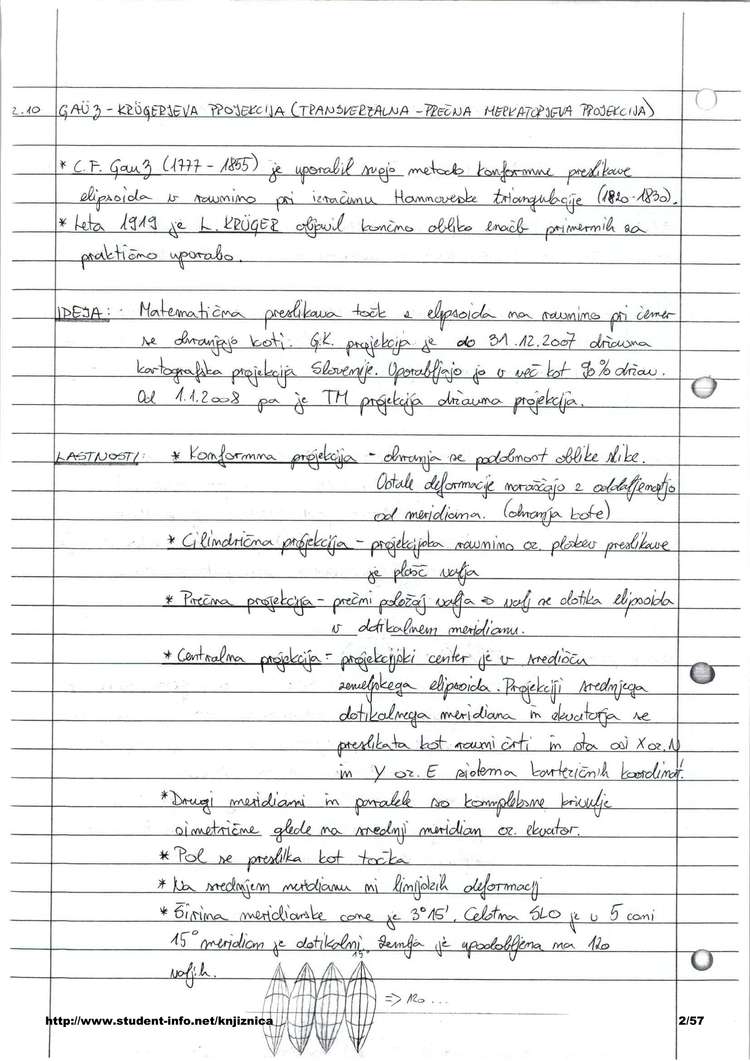 2.10 GAÜß - KRÜGERJEVA PROJEKCIJA (TRANSVERZALNA - PREČNA MERKATORJEVA PROJEKCIJA)
* C.F. Gauß (1777 - 1855) je uporabil svojo metodo konformne preslikave
elipsoida v ravnino pri izračunu Hannoverske triangulacije (1820-1830).
* Leta 1919 je L. KRÜGER objavil končno obliko enačb primernih za
praktično uporabo.
IDEJA: Matematična preslikava točk z elipsoida na ravnino pri čemer
se ohranjajo koti. G.K. projekcija je do 31.12.2007 državna
kartografska projekcija Slovenije. Uporabljajo jo v več kot 90% držav.
Od 1.1.2008 pa je TM projekcija državna projekcija.
LASTNOSTI: * Konformna projekcija - ohranja se podobnost oblike slike.
Ostale deformacije naraščajo z oddaljenostjo
od meridiana. (ohranja kote)
* Cilindrična projekcija - projekcijska ravnina oz. ploskev preslikave
je plašč valja
* Prečna projekcija - prečni položaj valja => valj se dotika elipsoida
v dotikalnem meridianu.
* Centralna projekcija - projekcijski center je v središču
zemeljskega elipsoida. Projekciji srednjega
dotikalnega meridiana in ekvatorja se
preslikata kot ravni črti in sta osi X oz. N
in Y oz. E sistema kartezičnih koordinat.
* Drugi meridiani in paralele so kompleksne krivulje
simetrične glede na srednji meridian oz. ekvator.
* Pol se preslika kot točka
* Na srednjem meridianu ni linijskih deformacij
* Širina meridianske cone je 3°15'. Celotna SLO je v 5 coni
15° meridian je dotikalni. Zemlja je upodobljena na 120
valjih.
15°
=> 120 ...
http://www.student-info.net/knjiznica 2/57